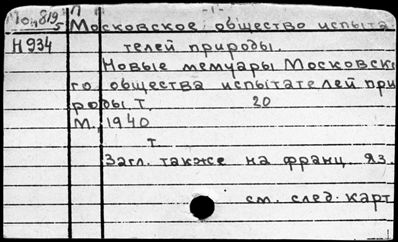 П -1-
Московское общество испыта
Н934 телей природы.
Новые мемуары Московско
го общества испытателей при
роды Т. 20
М. 1940
т.
Загл. также на франц. яз.
см. след. карт